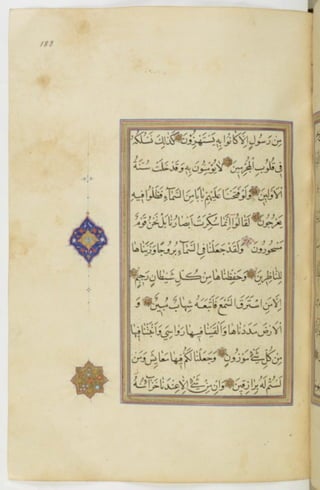 مِن رَسُولٍ اِلَّا كَانُوا بِهِ يَسْتَهْزِؤُنَ كَذَلِكَ نَسْلُكُهُ
فِى قُلُوبِ الْمُجْرِمِينَ لَا يُؤْمِنُونَ بِهِ وَقَدْ خَلَتْ سُنَّةُ
الْاَوَّلِينَ وَلَوْ فَتَحْنَا عَلَيْهِمْ بَابًا مِنَ السَّمَآءِ فَظَلُّوا فِيهِ
يَعْرُجُونَ لَقَالُوا اِنَّمَا سُكِّرَتْ اَبْصَارُنَا بَلْ نَحْنُ قَوْمٌ
مَسْحُورُونَ وَلَقَدْ جَعَلْنَا فِى السَّمَآءِ بُرُوجًا وَزَيَّنَّاهَا
لِلنَّاظِرِينَ وَحَفِظْنَاهَا مِنْ كُلِّ شَيْطَانٍ رَجِيمٍ
اِلَّا مَنِ اسْتَرَقَ السَّمْعَ فَاَتْبَعَهُ شِهَابٌ مُبِينٌ وَ
الْاَرْضَ مَدَدْنَاهَا وَاَلْقَيْنَا فِيهَا رَوَاسِىَ وَاَنْبَتْنَا فِيهَا
مِنْ كُلِّ شَىْءٍ مَوْزُونٍ وَجَعَلْنَا لَكُمْ فِيهَا مَعَايِشَ وَمَنْ
لَسْتُمْ لَهُ بِرَازِقِينَ وَاِنْ مِنْ شَىْءٍ اِلَّا عِنْدَنَا خَزَآئِنُهُ